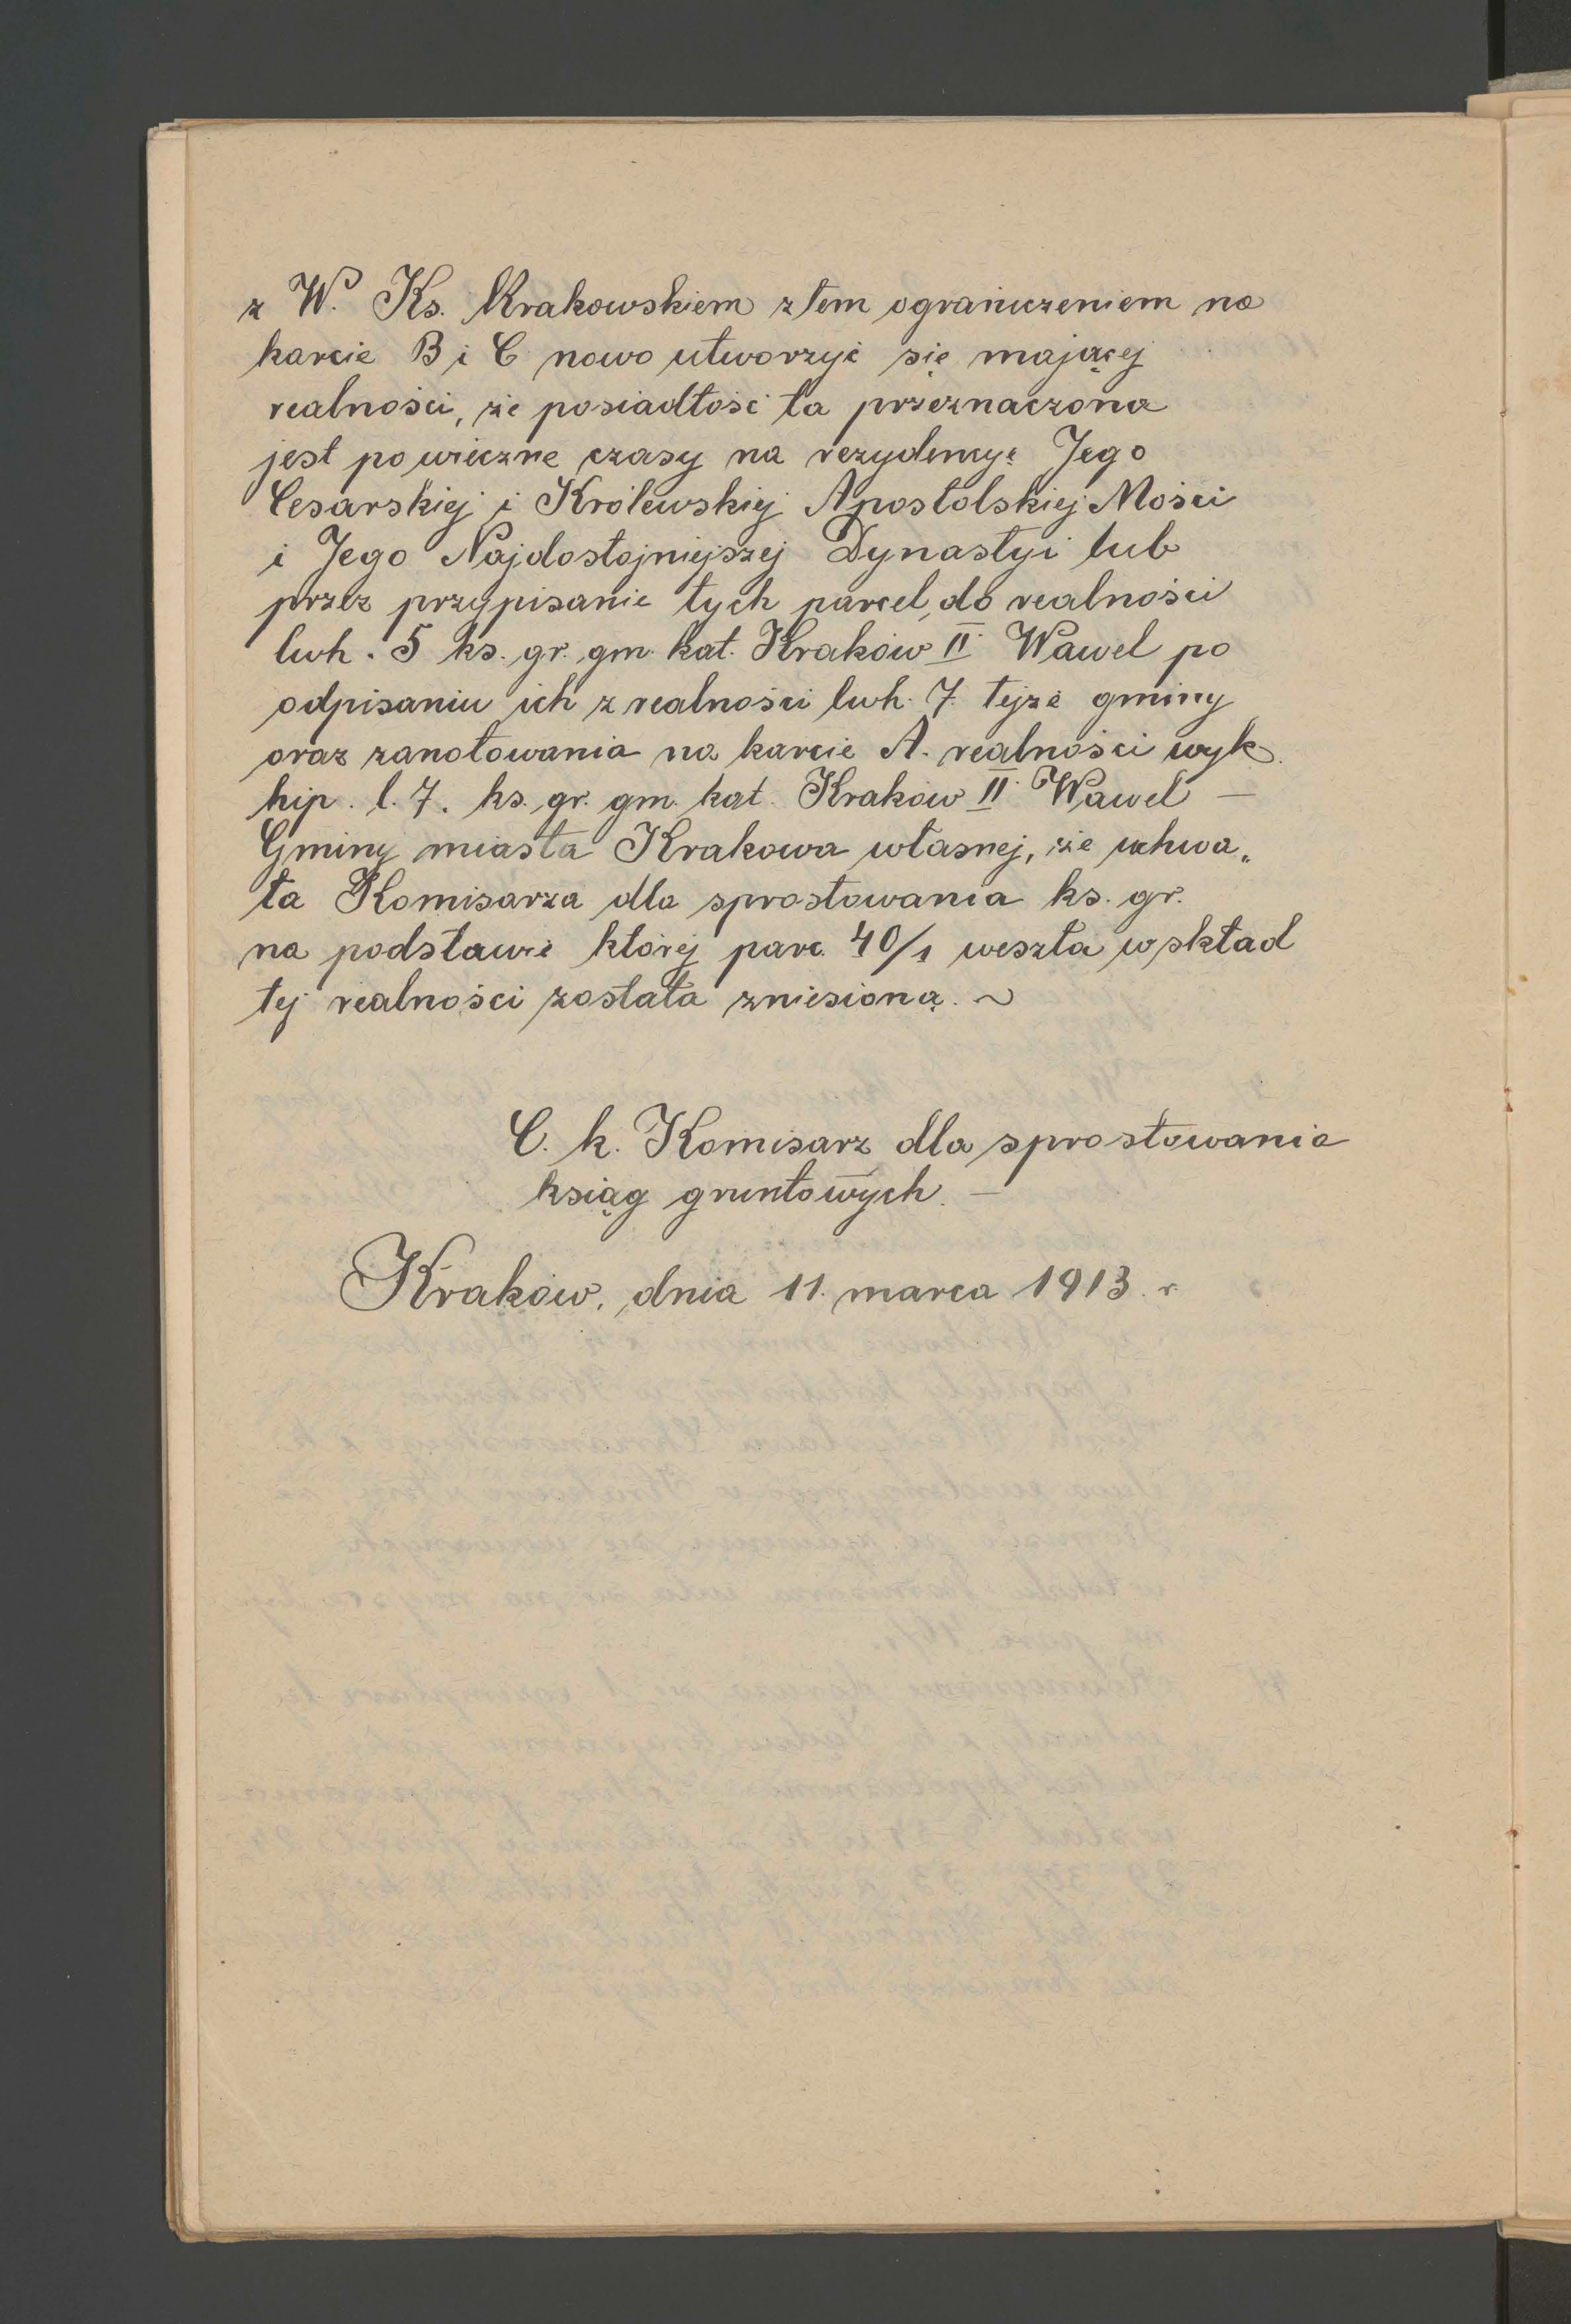 z W. Ks. Krakowskiem z tem ograniczeniem na
karcie B i C nowo utworzyć się mającej
realności, że posiadłość ta przeznaczona
jest po wieczne czasy na rezydencyę Jego
Cesarskiej i Królewskiej Apostolskiej Mości
i Jego Najdostojniejszej Dynastyi lub
przez przypisanie tych parcel, do realności
lwh. 5 ks. gr. gm. kat. Kraków II. Wawel po
odpisaniu ich z realności lwh. 7. tejże gminy
oraz zanotowania na karcie A. realności wyk.
hip. l. 7. ks. gr. gm. kat. Kraków II. Wawel —
Gminy miasta Krakowa własnej, że uchwa„
ła Komisarza dla sprostowania ks. gr.
na podstawie której parc. 40/1 weszła w skład
tej realności została zniesioną. ~
C. k. Komisarz dla sprostowania
ksiąg gruntowych. —
Kraków, dnia 11. marca 1913. r.